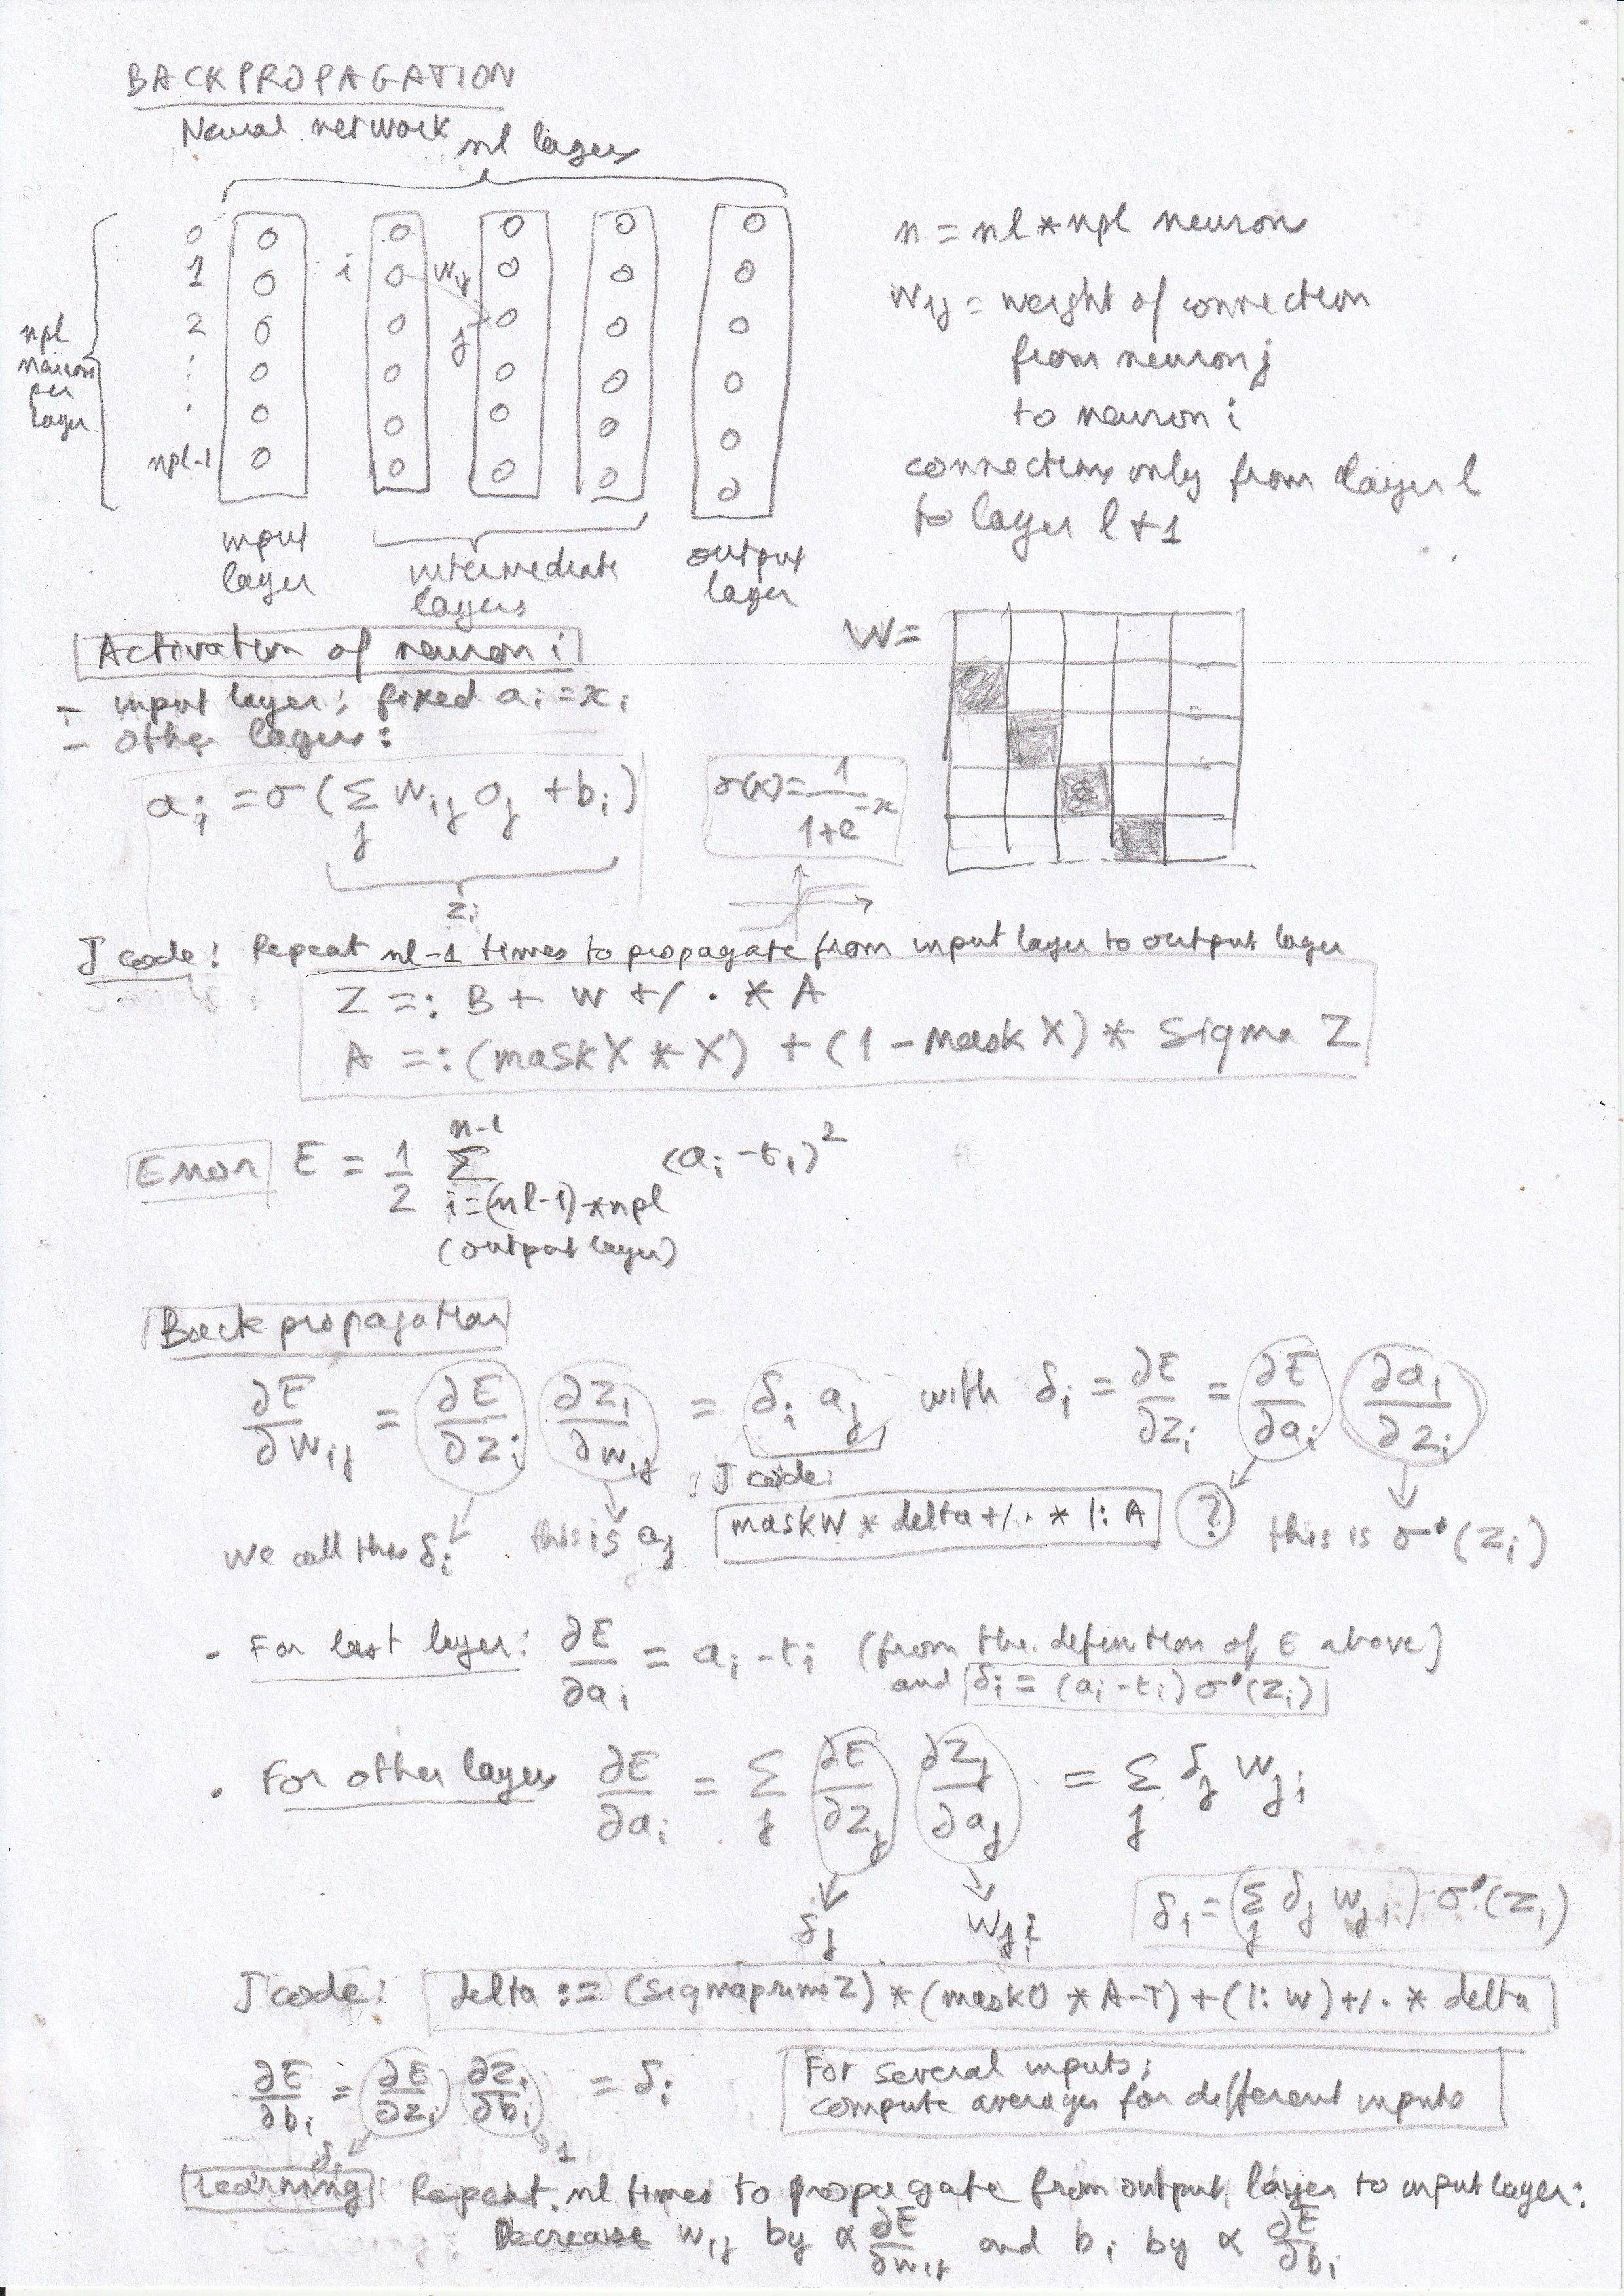 BACKPROPAGATION
Neural network
nl layers
0
1
2
⋮
npl-1
npl
neurons
per
layer
i
wij
j
input
layer
intermediate
layers
output
layer
n = nl * npl neurons
wij = weight of connection
from neuron j
to neuron i
connections only from layer l
to layer l+1
W =
Activation of neuron i
- input layer: fixed ai = xi
- other layers:
ai = σ(∑j wij aj + bi)
zi
σ(x) = 1/(1+e^-x)
J code: Repeat nl-1 times to propagate from input layer to output layer
Z =: B + W +/ . * A
A =: (maskX * X) + (1 - maskX) * sigma Z
Error E = 1/2 ∑ i=(nl-1)*npl n-1 (ai - ti)²
(output layer)
Backpropagation
∂E/∂wij = ∂E/∂zi ∂zi/∂wij = δi aj with δi = ∂E/∂zi = ∂E/∂ai ∂ai/∂zi
J code:
we call this δi this is aj maskW * delta +/ . * |: A ? this is σ'(zi)
- For last layer: ∂E/∂ai = ai - ti (from the definition of E above)
and δi = (ai - ti) σ'(zi)
- For other layers ∂E/∂ai = ∑j ∂E/∂zj ∂zj/∂aj = ∑j δj wji
δj wji δi = (∑j δj wji) σ'(zi)
J code: delta := (sigmaprime Z) * (maskO * A-T) + (|: W) +/ . * delta
∂E/∂bi = ∂E/∂zi ∂zi/∂bi = δi
δi 1
For several inputs:
compute averages for different inputs
Learning Repeat nl times to propagate from output layer to input layer:
Decrease wij by α ∂E/∂wij and bi by α ∂E/∂bi